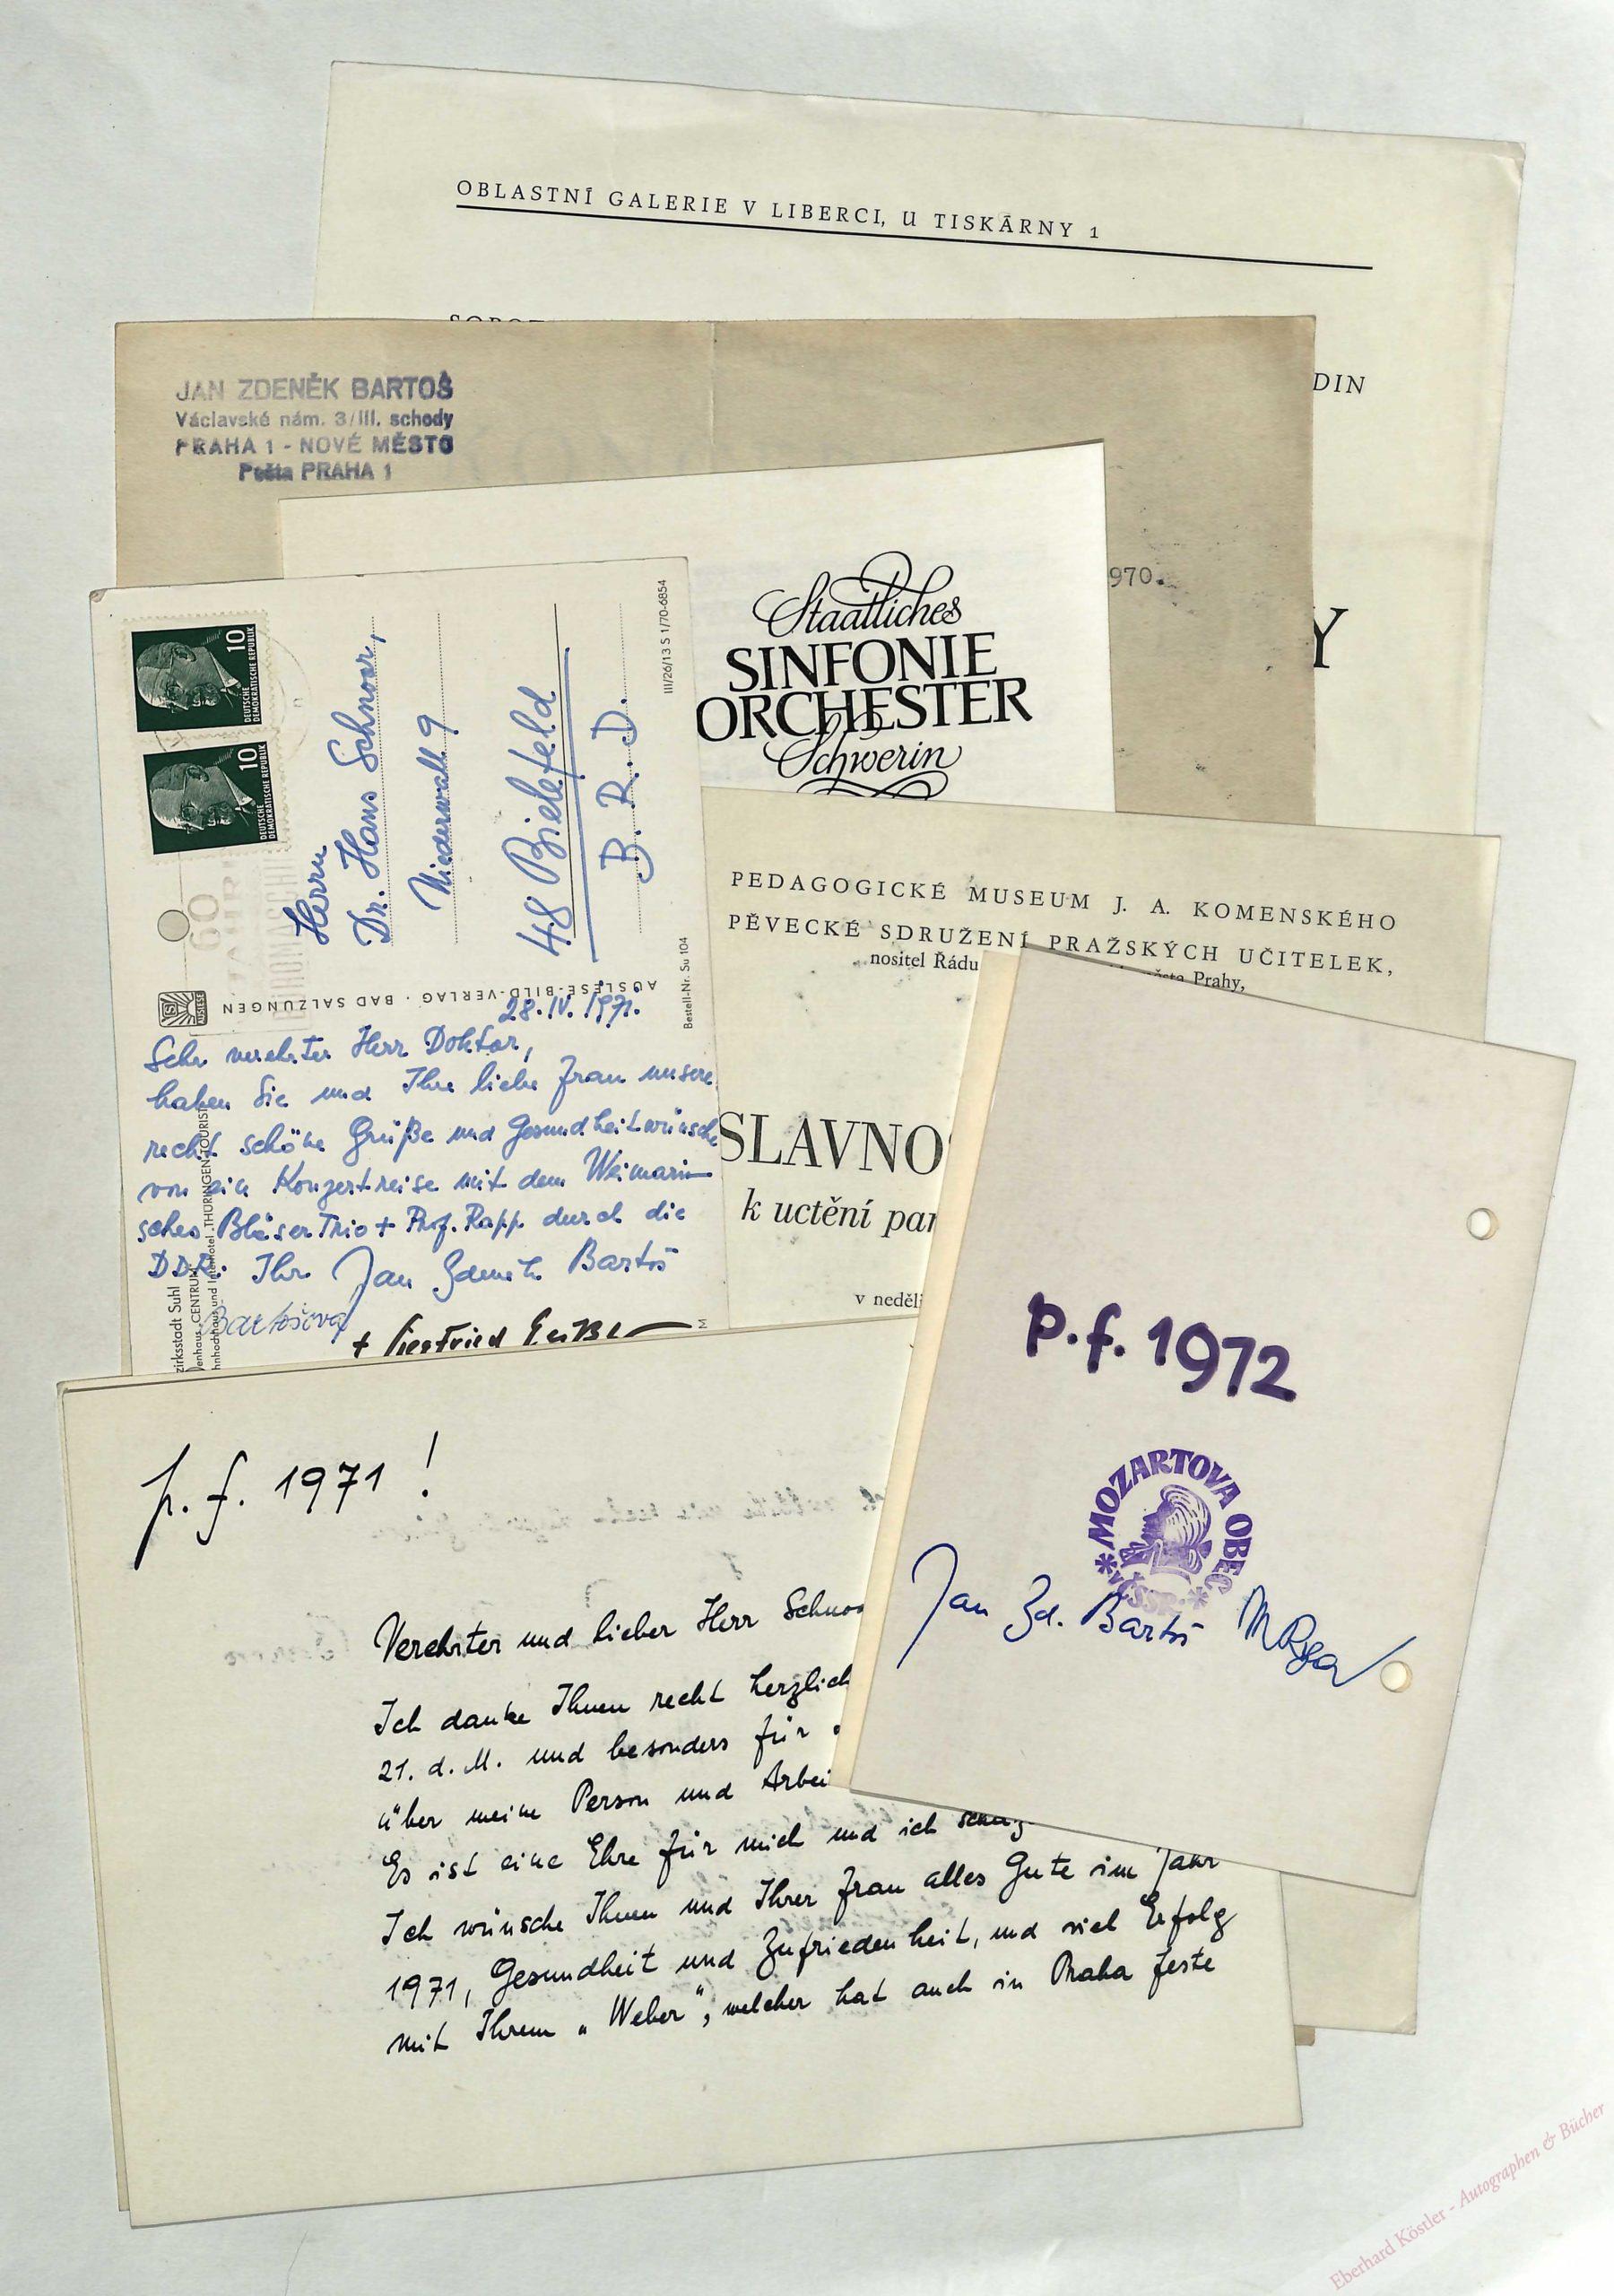 OBLASTNÍ GALERIE V LIBERCI, U TISKÁRNY 1
DIN
JAN ZDENĚK BARTOŠ
Václavské nám. 3/III. schody
PRAHA 1 - NOVÉ MĚSTO
Pošta PRAHA 1
970.
Y
Staatliches
SINFONIE
ORCHESTER
Schwerin
10
DEUTSCHE
DEMOKRATISCHE REPUBLIK
10
DEUTSCHE
DEMOKRATISCHE REPUBLIK
Herrn
Dr. Hans Schnoor,
Niederwall 9
48 Bielefeld
B. R. D.
III/26/13 S 1/70-6854
Bestell-Nr. Su 104
AUSLESE-BILD-VERLAG · BAD SALZUNGEN
28. IV. 1971.
Sehr verehrter Herr Doktor,
haben Sie und Ihre liebe Frau unsere
recht schöne Grüße und Gesundheitwünsche
von ein Konzertreise mit dem Weimarin
sches Bläser Trio + Prof. Rapp durch die
DDR. Ihr Jan Zdeněk Bartoš
Bartošová
+ Siegfried
zirksstadt Suhl
enhaus CENTRUM
hnhochhaus und Interhotel THÜRINGEN TOURIST
PEDAGOGICKÉ MUSEUM J. A. KOMENSKÉHO
PĚVECKÉ SDRUŽENÍ PRAŽSKÝCH UČITELEK,
nositel Řádu
Prahy,
SLAVNO
k uctění pa
v neděli
p.f. 1972
MOZARTOVA OBEC
V ČSSR
Jan Zd. Bartoš
p. f. 1971 !
Verehrter und lieber Herr Schnoo
Ich danke Ihnen recht herzlich
21. d. M. und besonders für
über meine Person und Arbei
Es ist eine Ehre für mich und ich
Ich wünsche Ihnen und Ihrer Frau alles Gute im Jahr
1971, Gesundheit und Zufriedenheit, und viel Erfolg
mit Ihrem „Weber", welcher hat auch in Praha feste
Eberhard Köstler - Autographen & Bücher